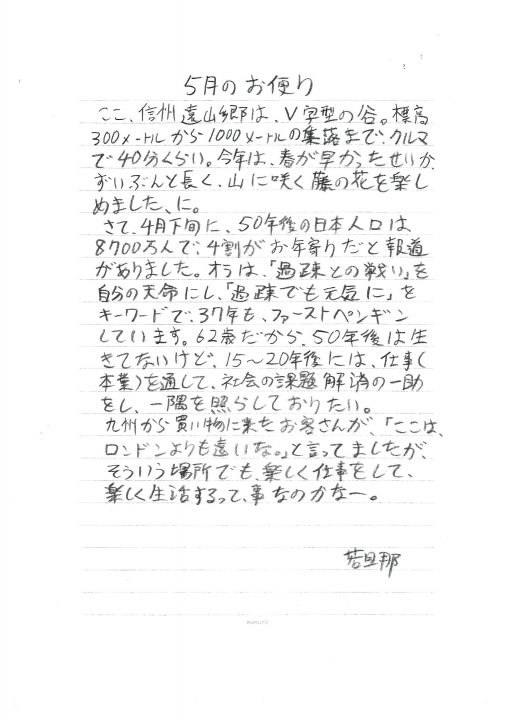 5月のお便り
ここ、信州遠山郷は、V字型の谷。標高
300メートルから1000メートルの集落まで、クルマ
で40分くらい。今年は、春が早かったせいか、
ずいぶんと長く、山に咲く藤の花を楽し
めました、に。
さて、4月下旬に、50年後の日本人口は
8700万人で、4割がお年寄りだと報道
がありました。オラは、「過疎との戦い」を
自分の天命にし、「過疎でも元気に」を
キーワードで、37年も、ファーストペンギン
しています。62歳だから、50年後は生
きてないけど、15〜20年後には、仕事(
本業)を通して、社会の課題解消の一助
をし、一隅を照らしておりたい。
九州から買い物に来たお客さんが、「ここは、
ロンドンよりも遠いな。」と言ってましたが、
そういう場所でも、楽しく仕事をして、
楽しく生活するって、事なのかなー。
若旦那
KOKUYO